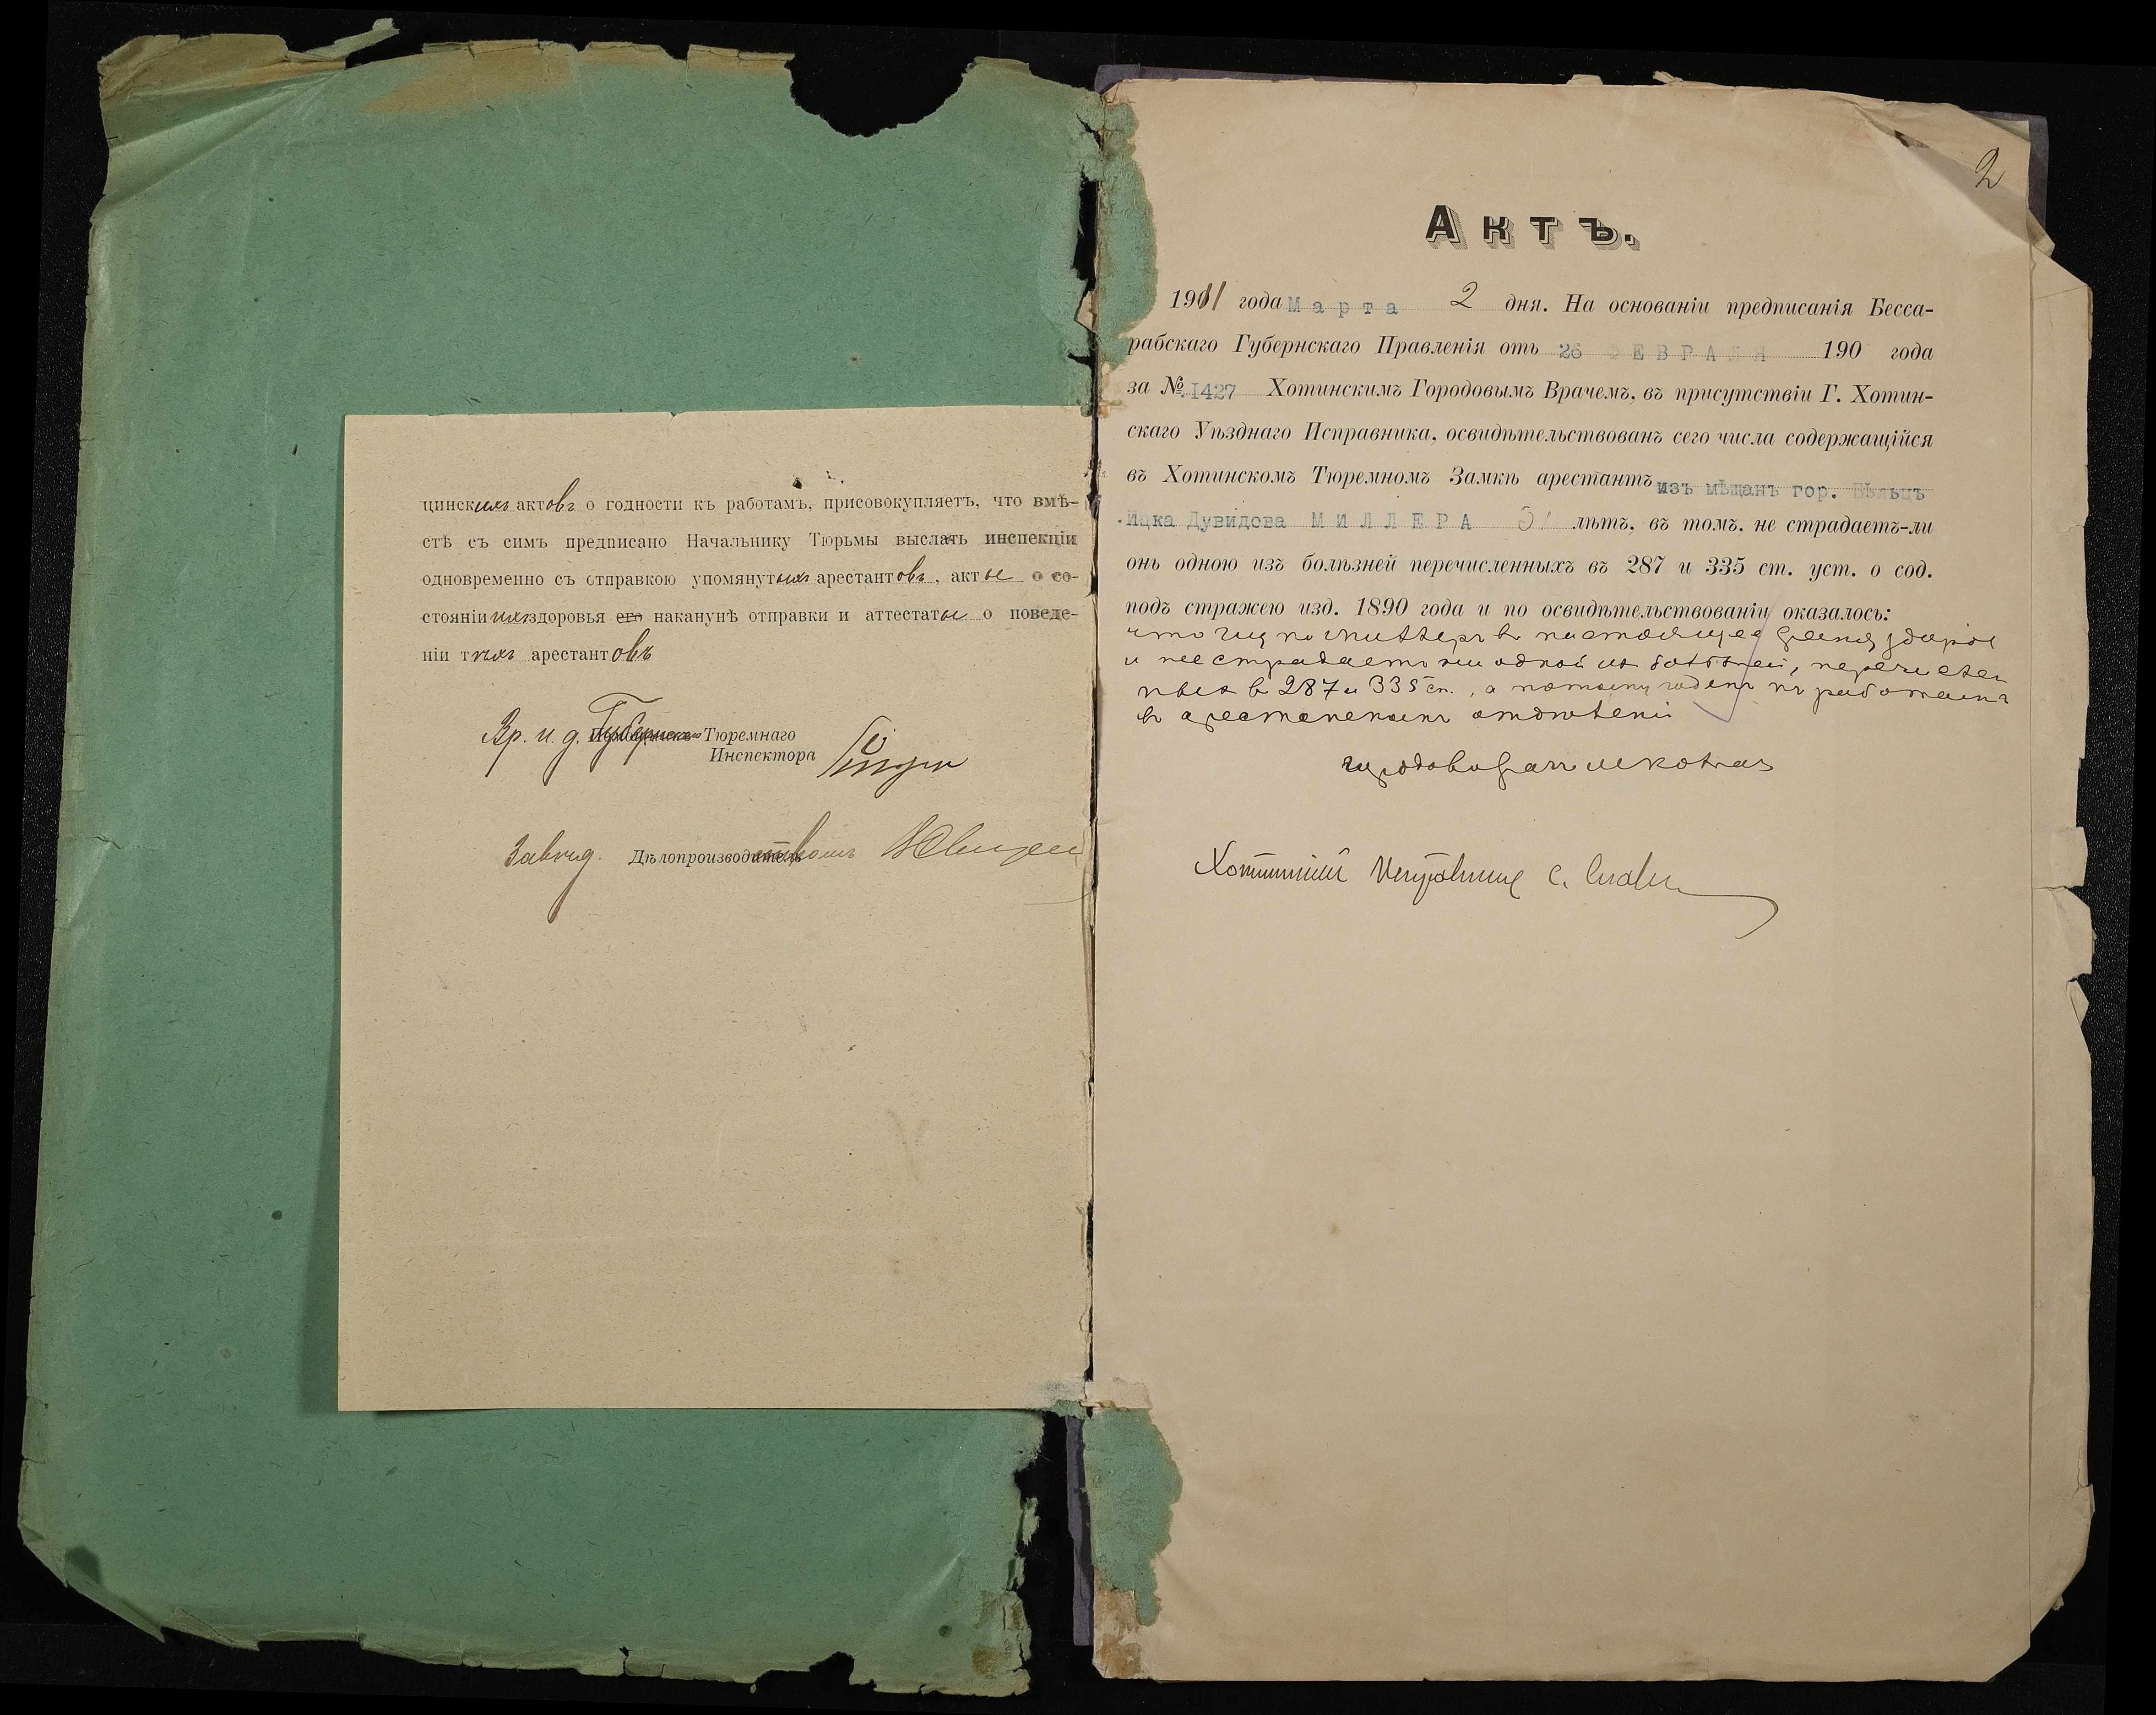 цинскихъ актовъ о годности къ работамъ, присовокупляетъ, что вмѣ-
стѣ съ симъ предписано Начальнику Тюрьмы выслать инспекціи
одновременно съ отправкою упомянутыхъ арестантовъ, акты о со-
стояніи ихъ здоровья его наканунѣ отправки и аттестаты о поведе-
ніи тѣхъ арестантовъ
Вр. и. д. Губерн. Тюремнаго
Инспектора
Завѣд. Дѣлопроизводствомъ
2
Актъ.
1911 года Марта 2 дня. На основаніи предписанія Бесса-
рабскаго Губернскаго Правленія отъ 26 ФЕВРАЛЯ 190 года
за № 1427 Хотинскимъ Городовымъ Врачемъ, въ присутствіи Г. Хотин-
скаго Уѣзднаго Исправника, освидѣтельствованъ сего числа содержащійся
въ Хотинскомъ Тюремномъ Замкѣ арестантъ изъ мѣщанъ гор. Бѣльцъ
Ицка Дувидова МИЛЛЕРА лѣтъ, въ томъ, не страдаетъ-ли
онъ одною изъ болѣзней перечисленныхъ въ 287 и 335 ст. уст. о сод.
подъ стражею изд. 1890 года и по освидѣтельствованіи оказалось:
что Ицко Миллеръ въ настоящее время здоров
и не страдаетъ ни одной из болѣзней, перечислен
ных в 287 и 335 ст., а потому годенъ къ работамъ
въ арестантскомъ отдѣленіи
городовой врачъ
Хотинскій Исправникъ С.